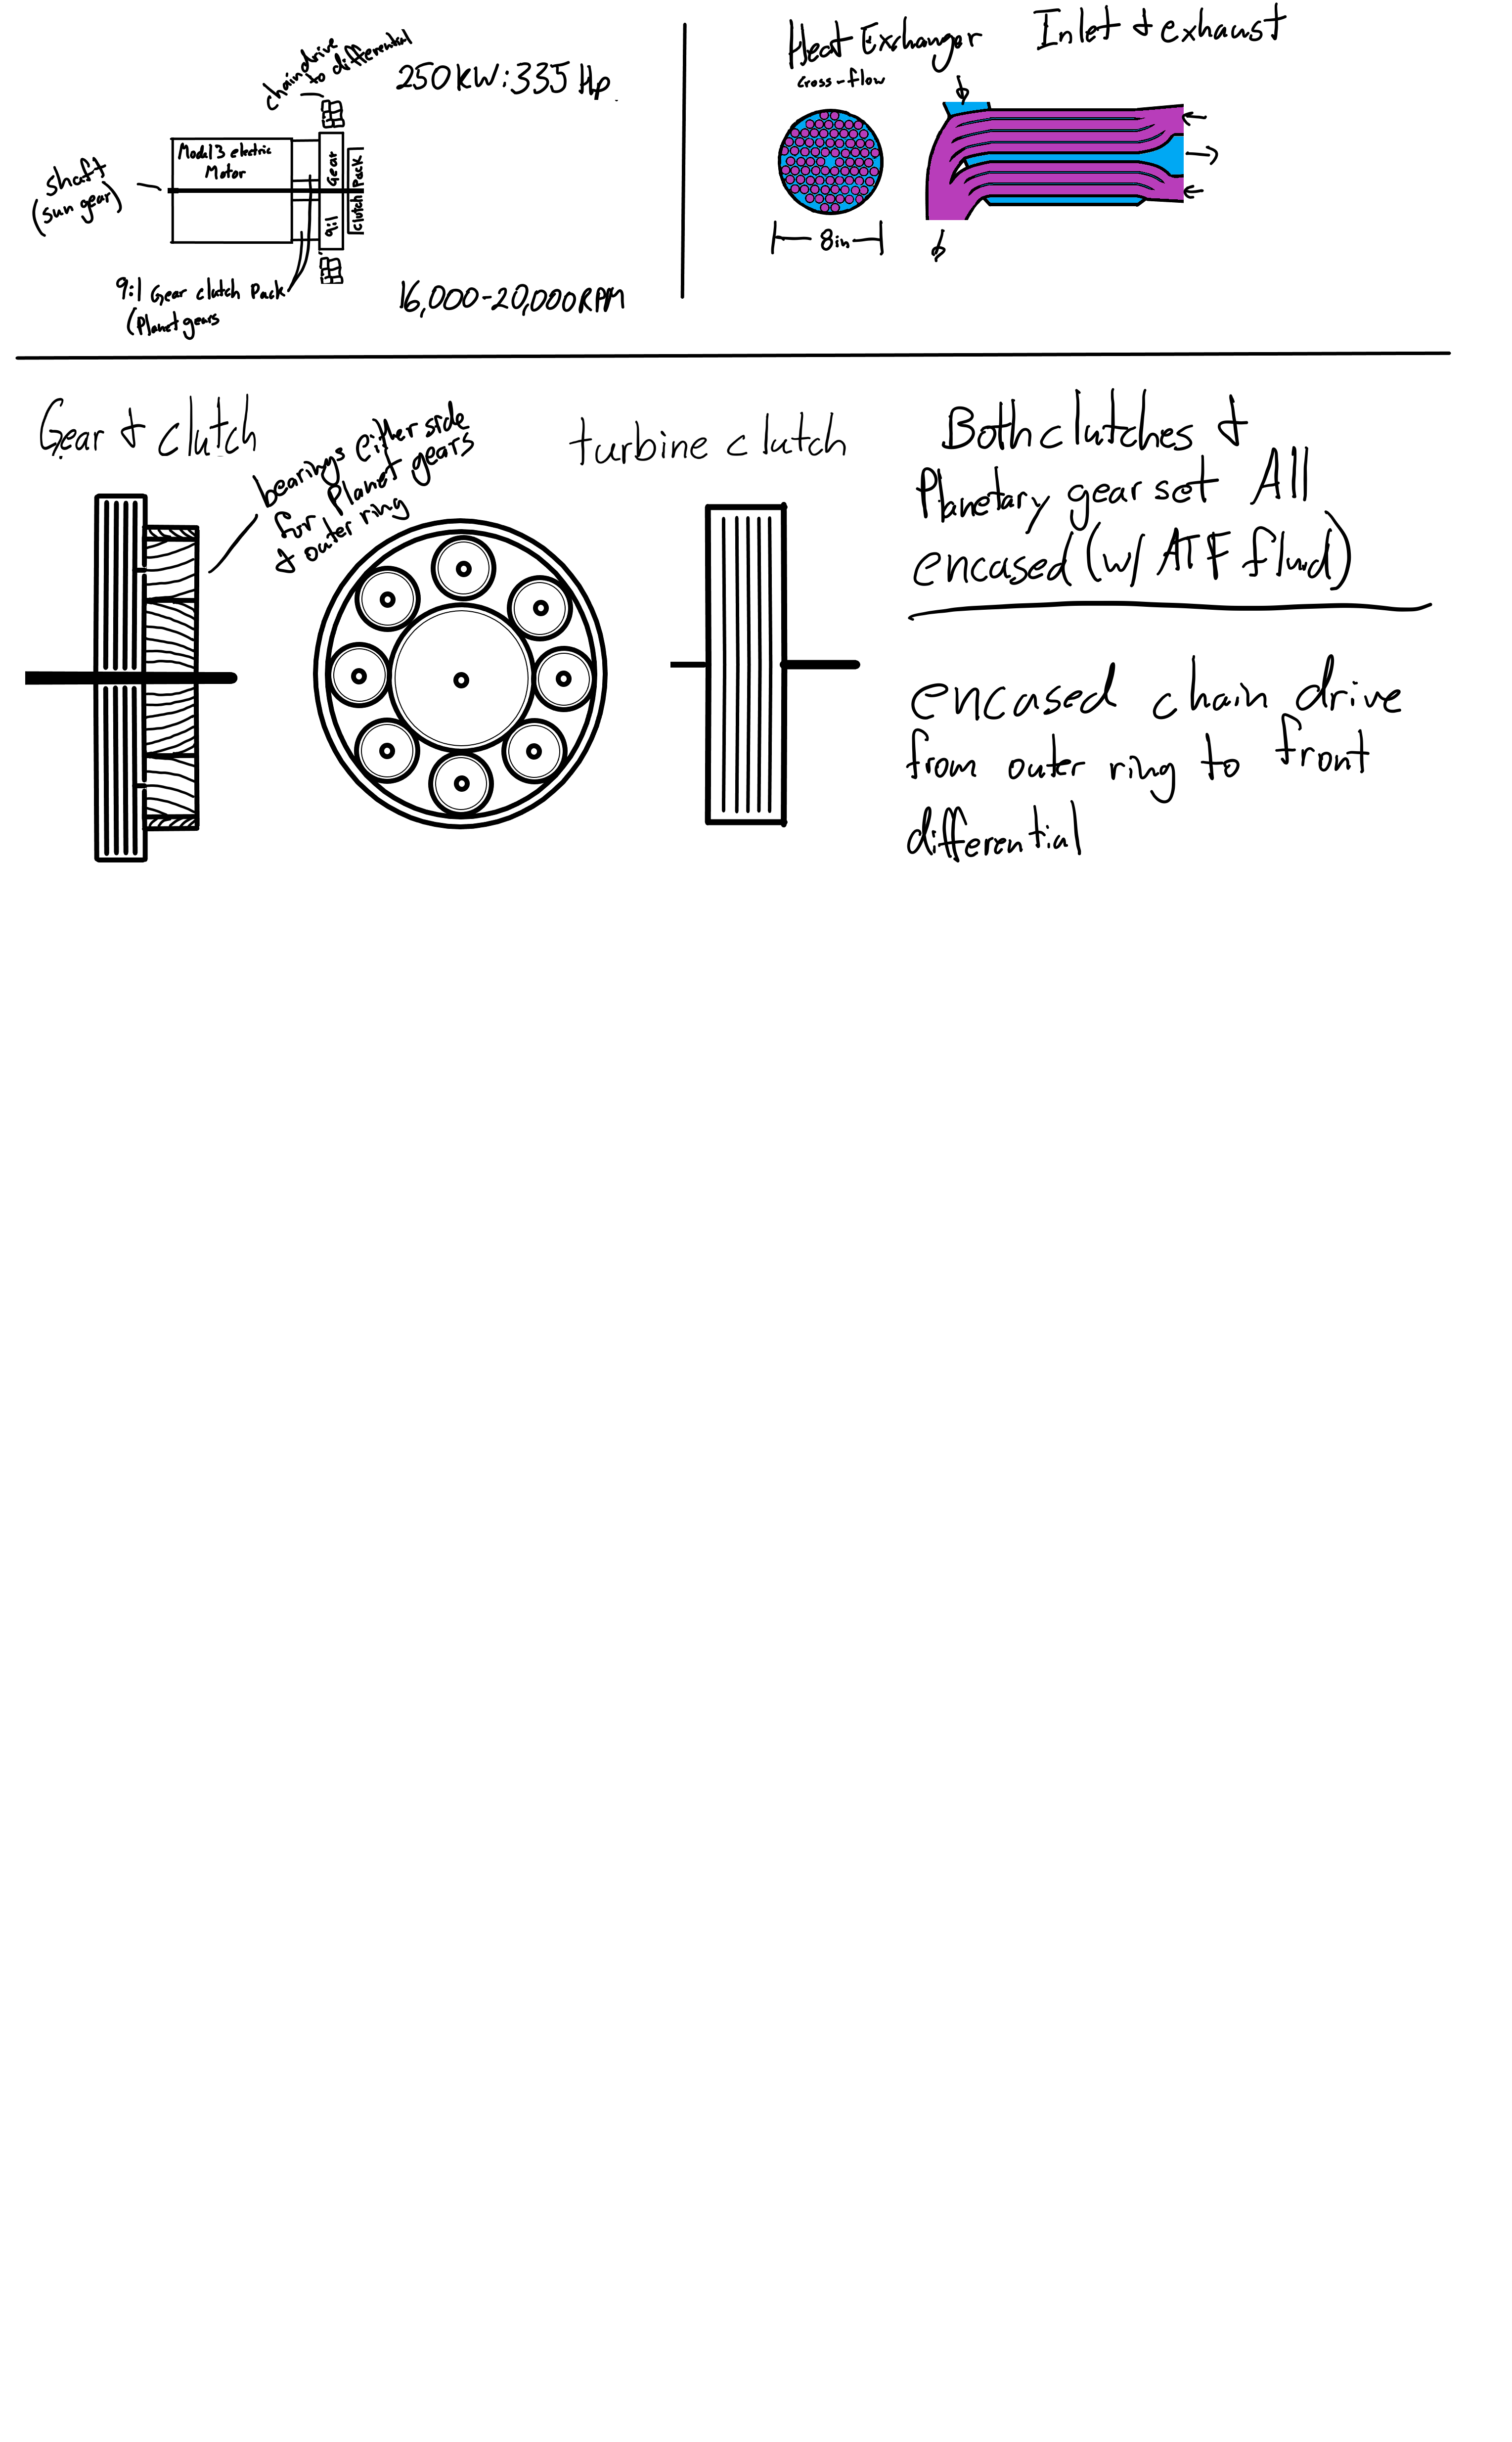 chain drive
to differential
250KW:335 Hp.
Model 3 electric
Motor
shaft
(sun gear)
Gear
9:1
Clutch Pack
9:1 Gear clutch Pack
(Planet gears
16,000-20,000RPM
Heat Exchanger
Cross-flow
Inlet & exhaust
8in
Gear & clutch
bearings Either side
for Planet gears
& outer ring
turbine clutch
Both clutches &
Planetary gearset All
encased (w/ ATF fluid)
encased chain drive
from outer ring to front
differential